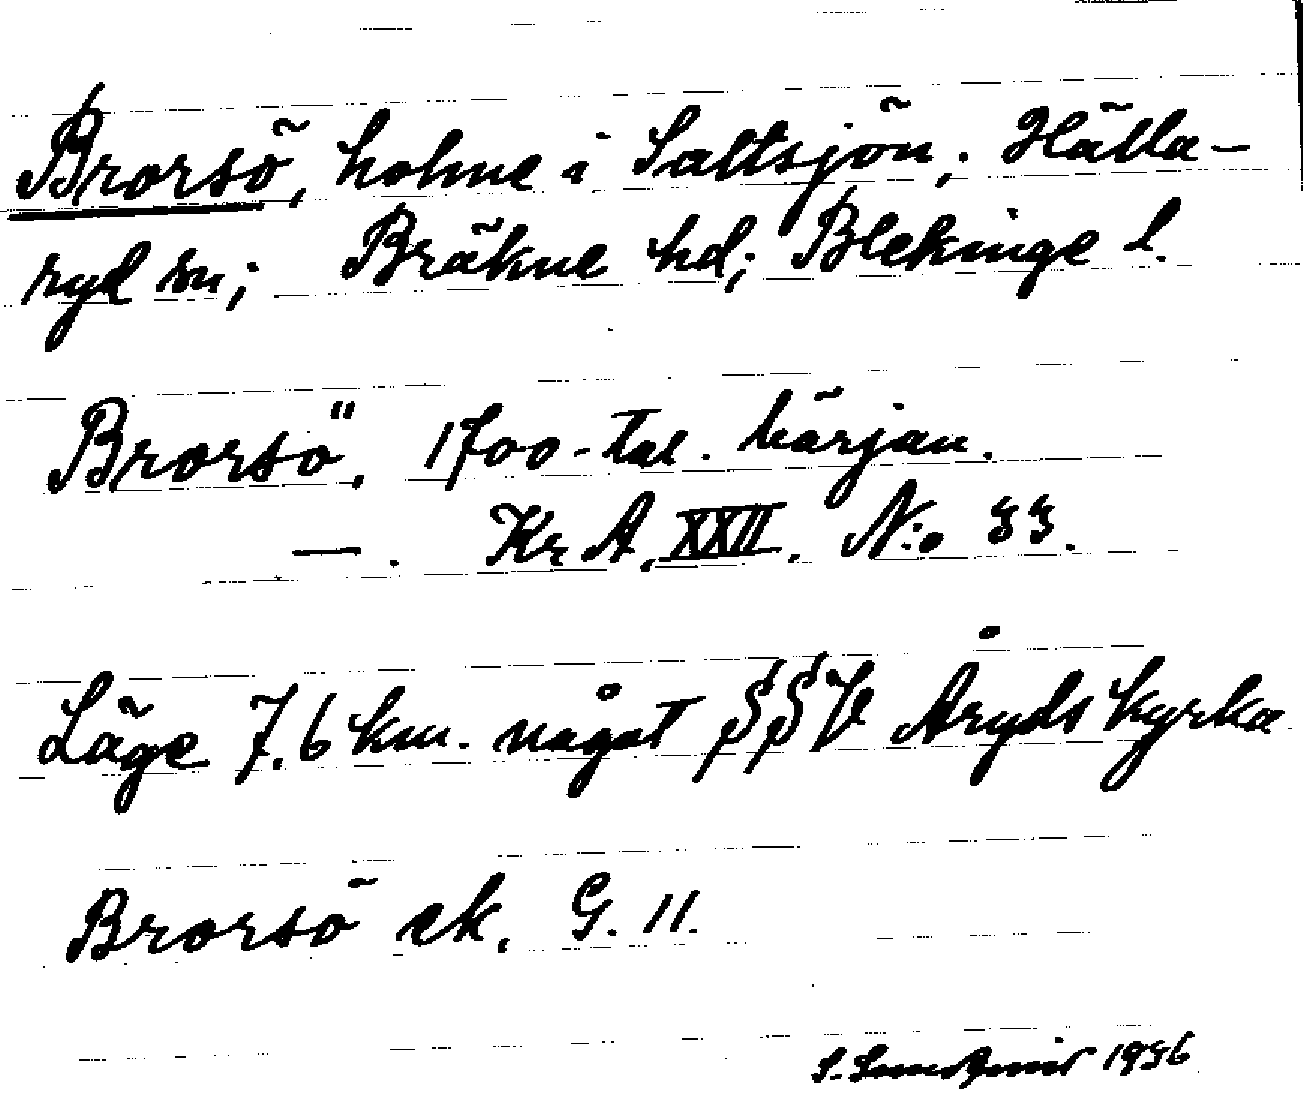 Brorsö, holme i Saltsjön; Hälla-
ryd sn; Bräkne hd; Blekinge l.
Brorsö. 1700-tal. början.
— . Kr A. XXII. N:o 33.
Läge 7.6 km. något SSV Åryds kyrka
Brorsö ek. G. 11.
S. 1936